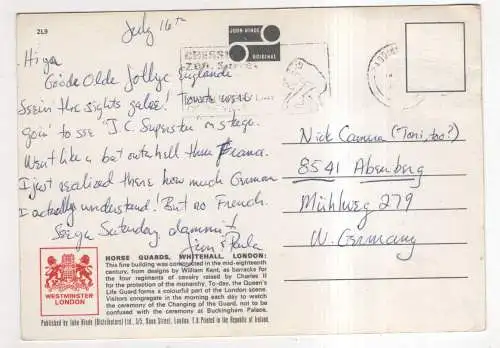 2L9
July 16th
JOHN HINDE
ORIGINAL
Hiya
Goode Olde Jollye Englande
Seein' the sights galore! Tonite we're
goin' to see "J.C. Superstar" on stage.
Went like a bat outa hell thru France.
I just realized there how much German
I actually understand! But no French.
See ya Saturday dammit!
Jim & Paula
Nick Camera (Toni, too?)
8541 Absenberg
Mühlweg 279
W. Germany
WESTMINSTER
LONDON
HORSE GUARDS, WHITEHALL, LONDON:
This fine building was constructed in the mid-eighteenth
century, from designs by William Kent, as barracks for
the four regiments of cavalry raised by Charles II
for the protection of the monarchy. To-day, the Queen's
Life Guard forms a colourful part of the London scene.
Visitors congregate in the morning each day to watch
the ceremony of the Changing of the Guard, not to be
confused with the ceremony at Buckingham Palace.
Published by John Hinde (Distributors) Ltd., London. Printed in the Republic of Ireland.